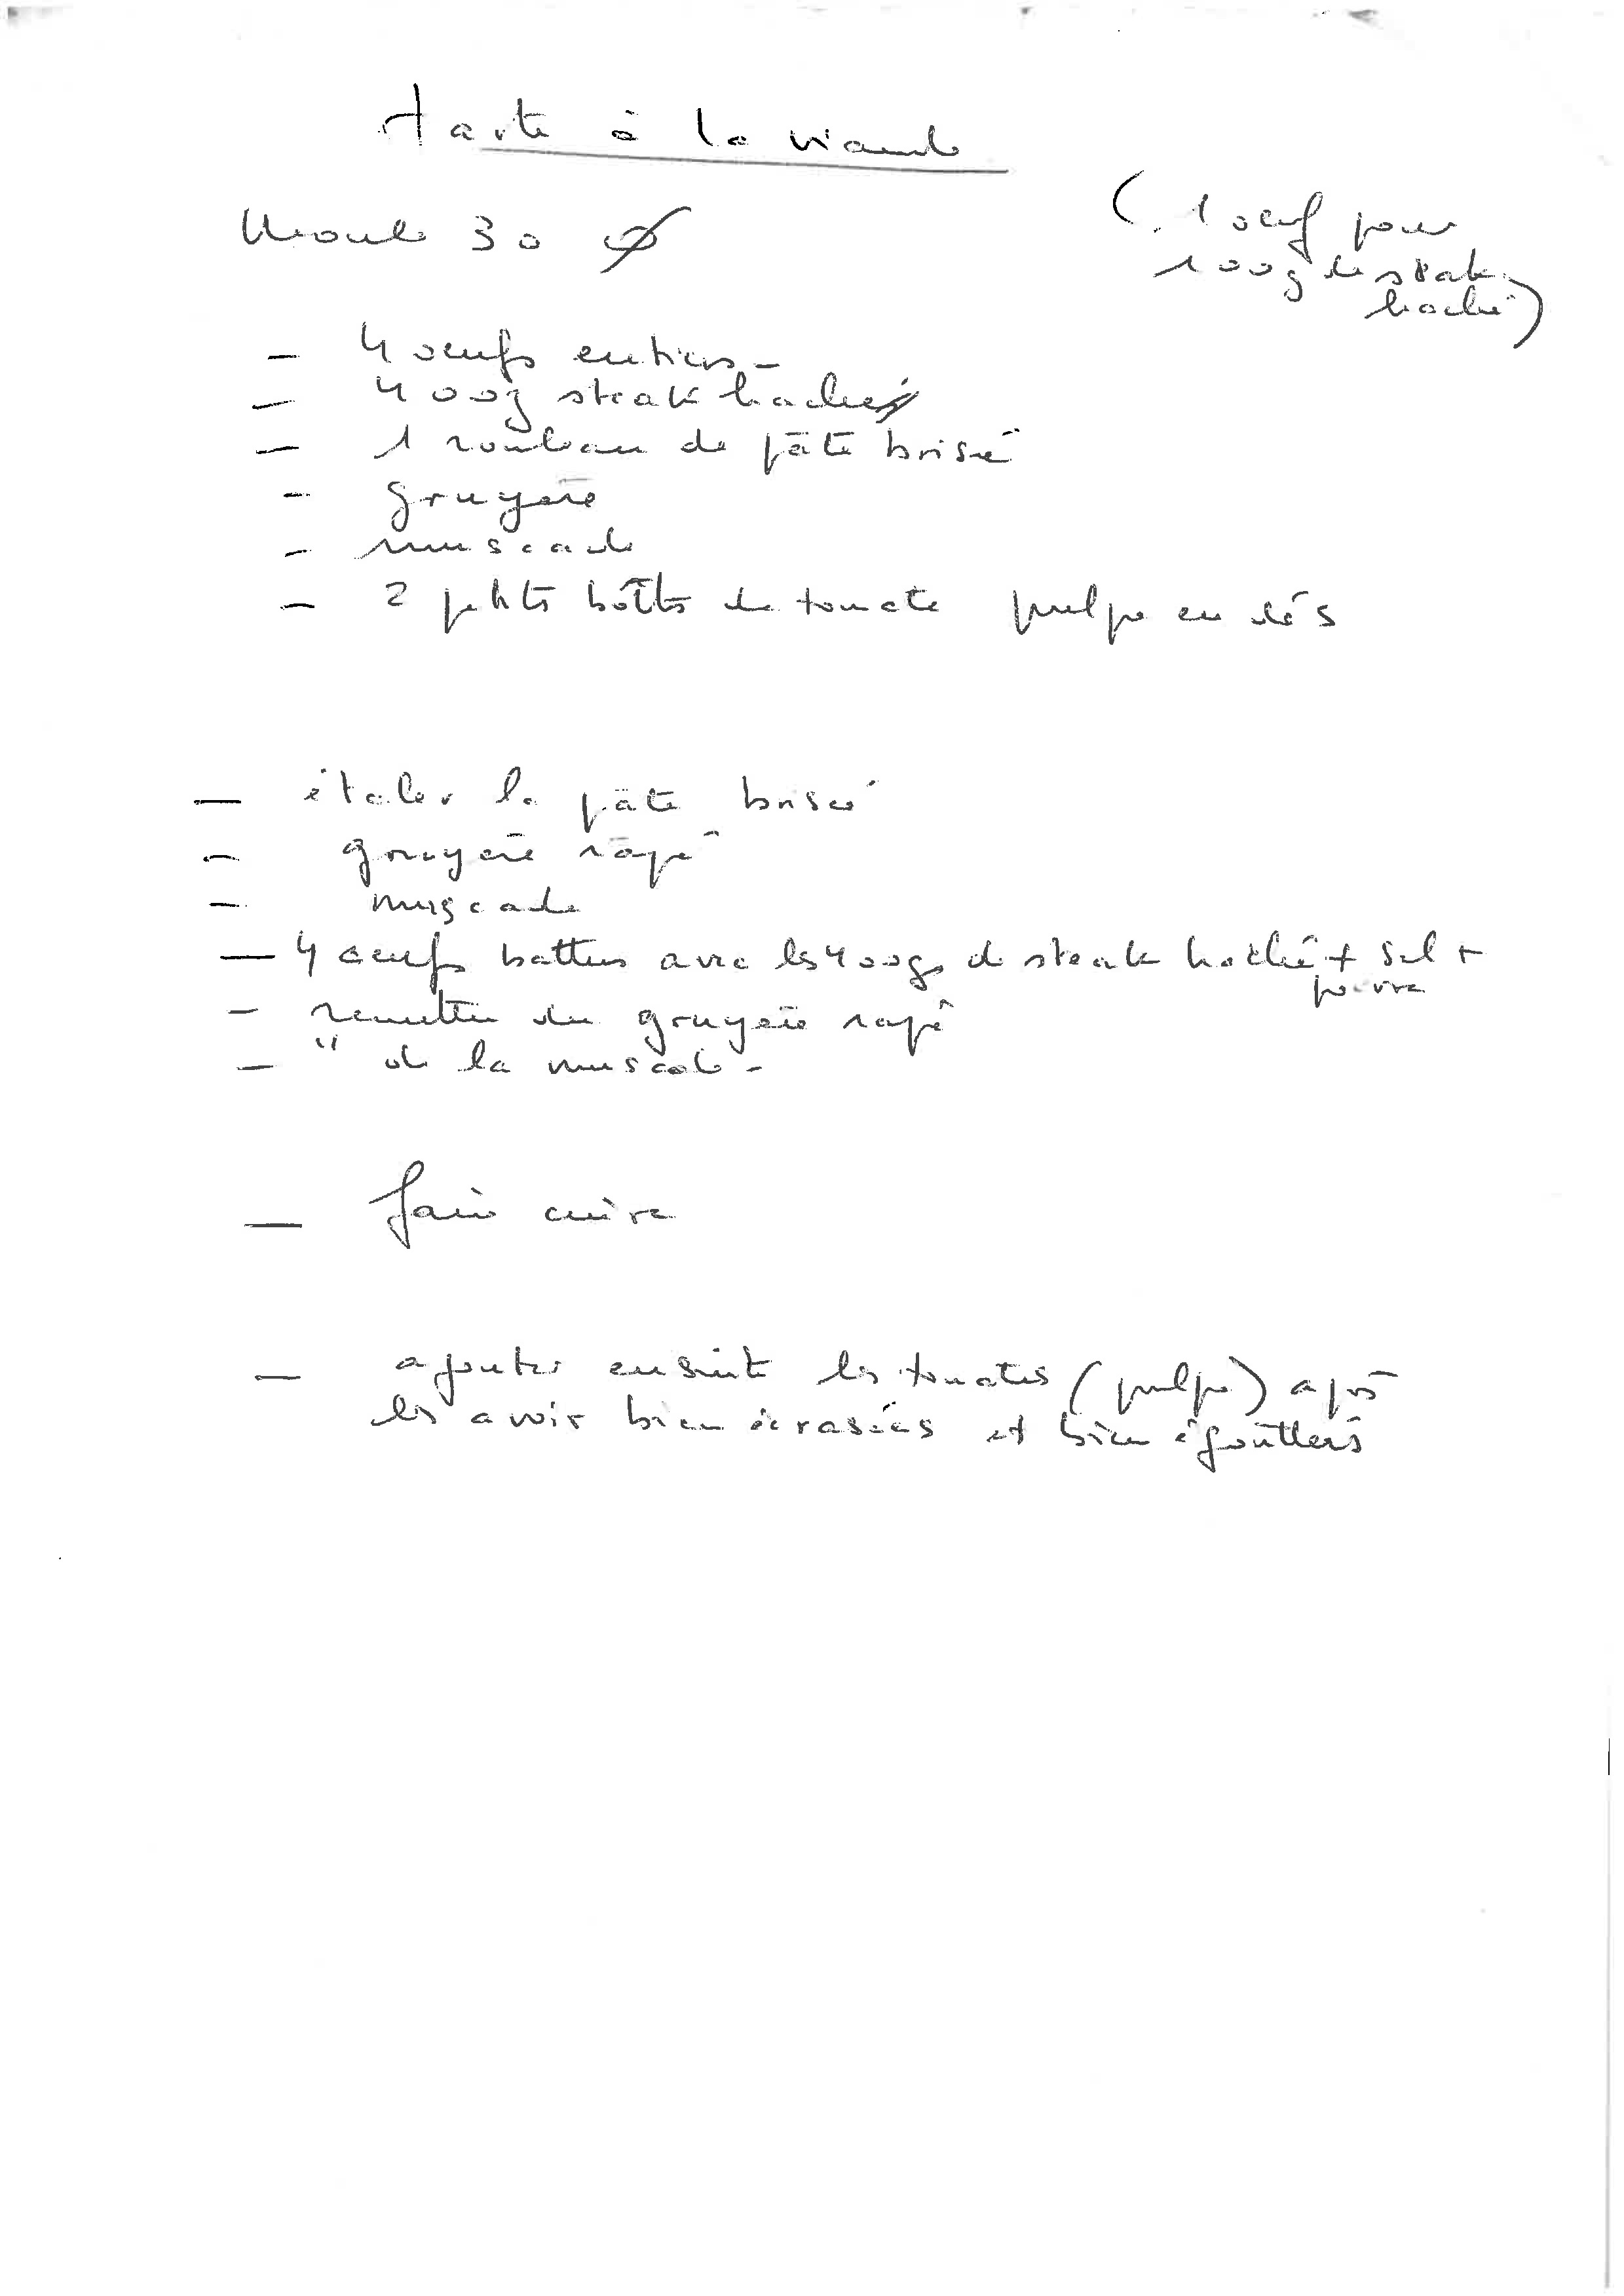 tarte à la viande
Moule 30 ø
(1 oeuf pour
100g de steak
haché)
- 4 oeufs entiers -
- 400g steak haché
- 1 rouleau de pâte brisée
- gruyère
- muscade
- 2 petites boîtes de tomate pulpe en dés
- étaler la pâte brisée
- gruyère rapé
- muscade
- 4 oeufs battus avec les 400g de steak haché + sel +
poivre
- remettre du gruyère rapé
- " de la muscade -
- faire cuire
- ajouter ensuite les tomates (pulpe) après
les avoir bien écrasées et bien égouttées